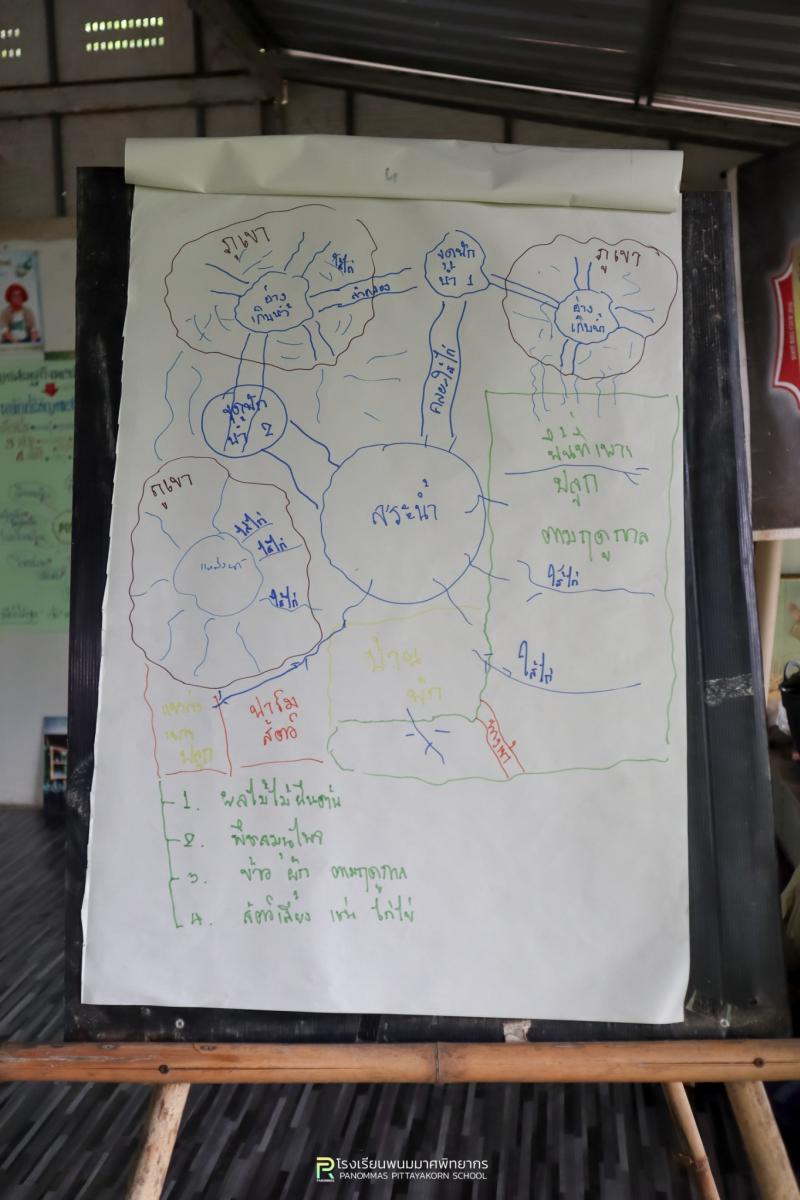 ภูเขา
ไส้ไก่
อ่าง
เก็บน้ำ
ลำคลอง
จุดพัก
น้ำ 1
ภูเขา
อ่าง
เก็บน้ำ
คลองไส้ไก่
จุดพัก
น้ำ 2
ภูเขา
ไส้ไก่
ไส้ไก่
ไส้ไก่
สระน้ำ
พื้นที่เพาะ
ปลูก
ตามฤดูกาล
ไส้ไก่
ไส้ไก่
บ้าน
พัก
ฟาร์ม
สัตว์
ปลูก
ทางเข้า
1. ผลไม้ไม้ยืนต้น
2. พืชสมุนไพร
3. ข้าว ผัก ตามฤดูกาล
4. สัตว์เลี้ยง เช่น ไก่ไข่
โรงเรียนพนมมาศพิทยากร
PANOMMAS PITTAYAKORN SCHOOL